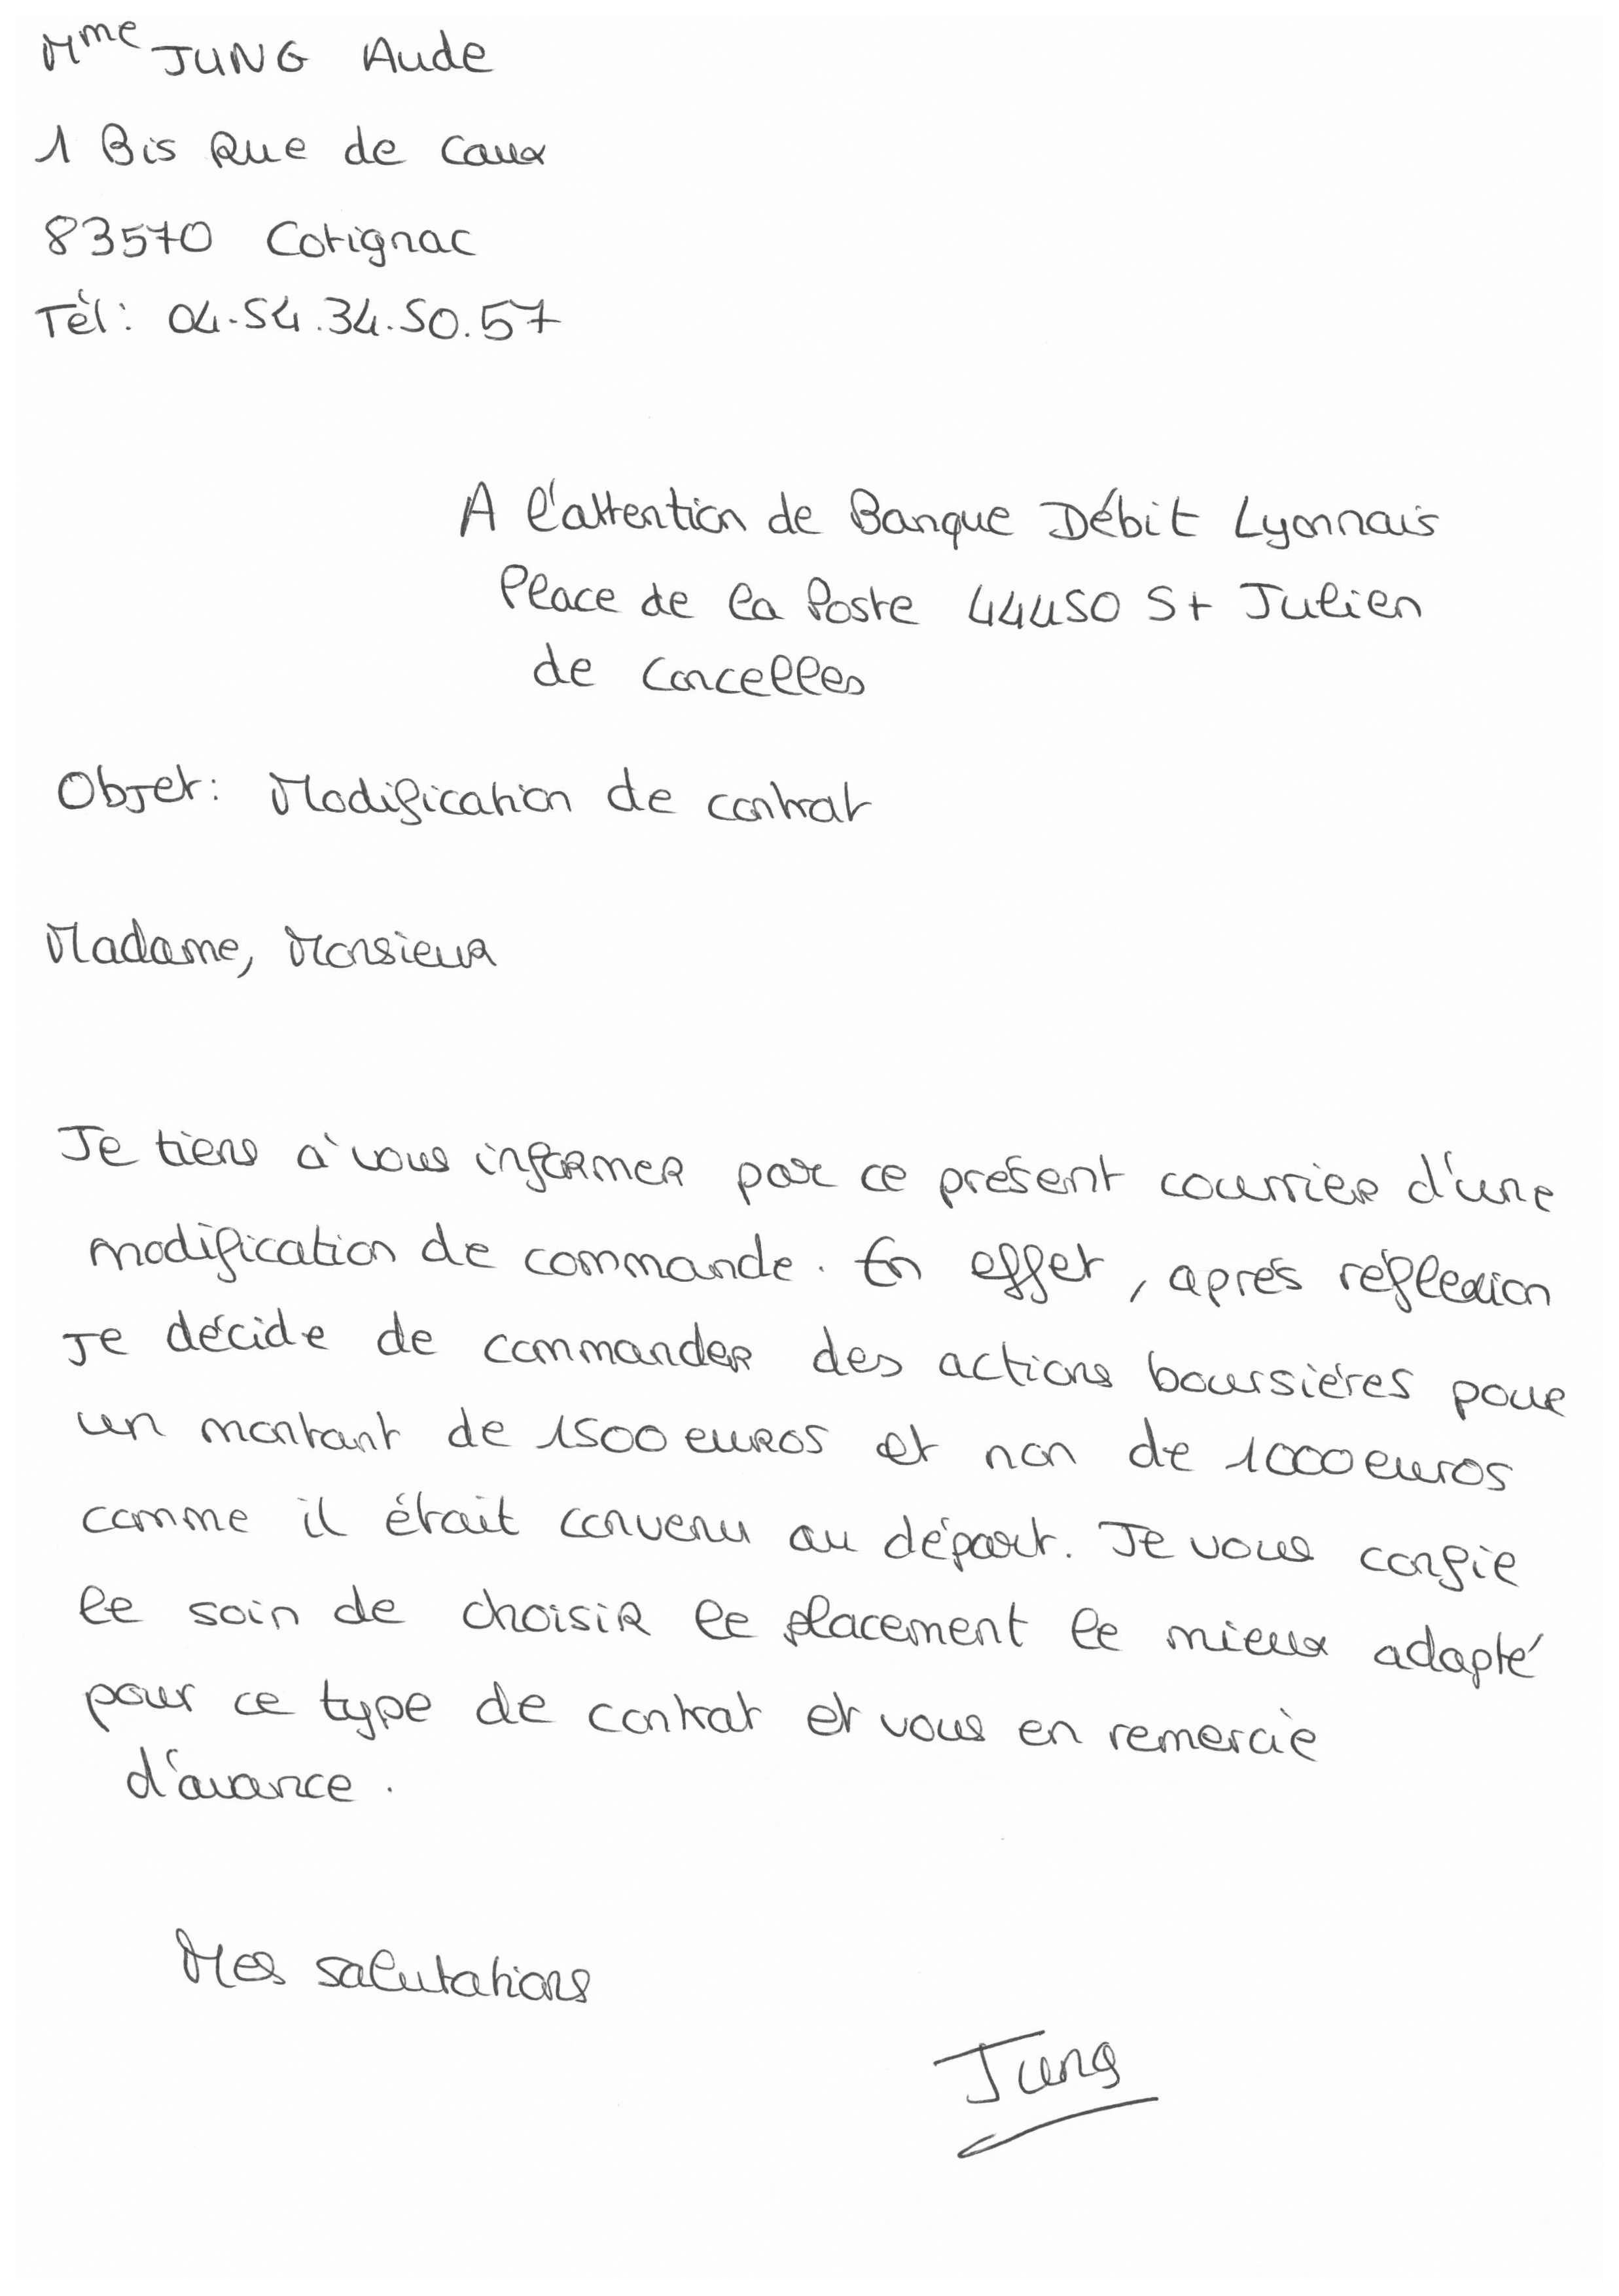 Mme JUNG Aude
1 Bis Rue de Caux
83570 Cotignac
Tèl: 04.54.34.50.57
A l'attention de Banque Débit Lyonnais
Place de la Poste 44450 St Julien
de Concelles
Objet: Modification de contrat
Madame, Monsieur
Je tiens à vous informer par ce présent courrier d'une
modification de commande. En effet, aprés réflexion
je décide de commander des actions boursiéres pour
un montant de 1500 euros et non de 1000 euros
comme il était convenu au départ. Je vous confie
le soin de choisir le placement le mieux adapté
pour ce type de contrat et vous en remercie
d'avance.
Mes salutations
Jung